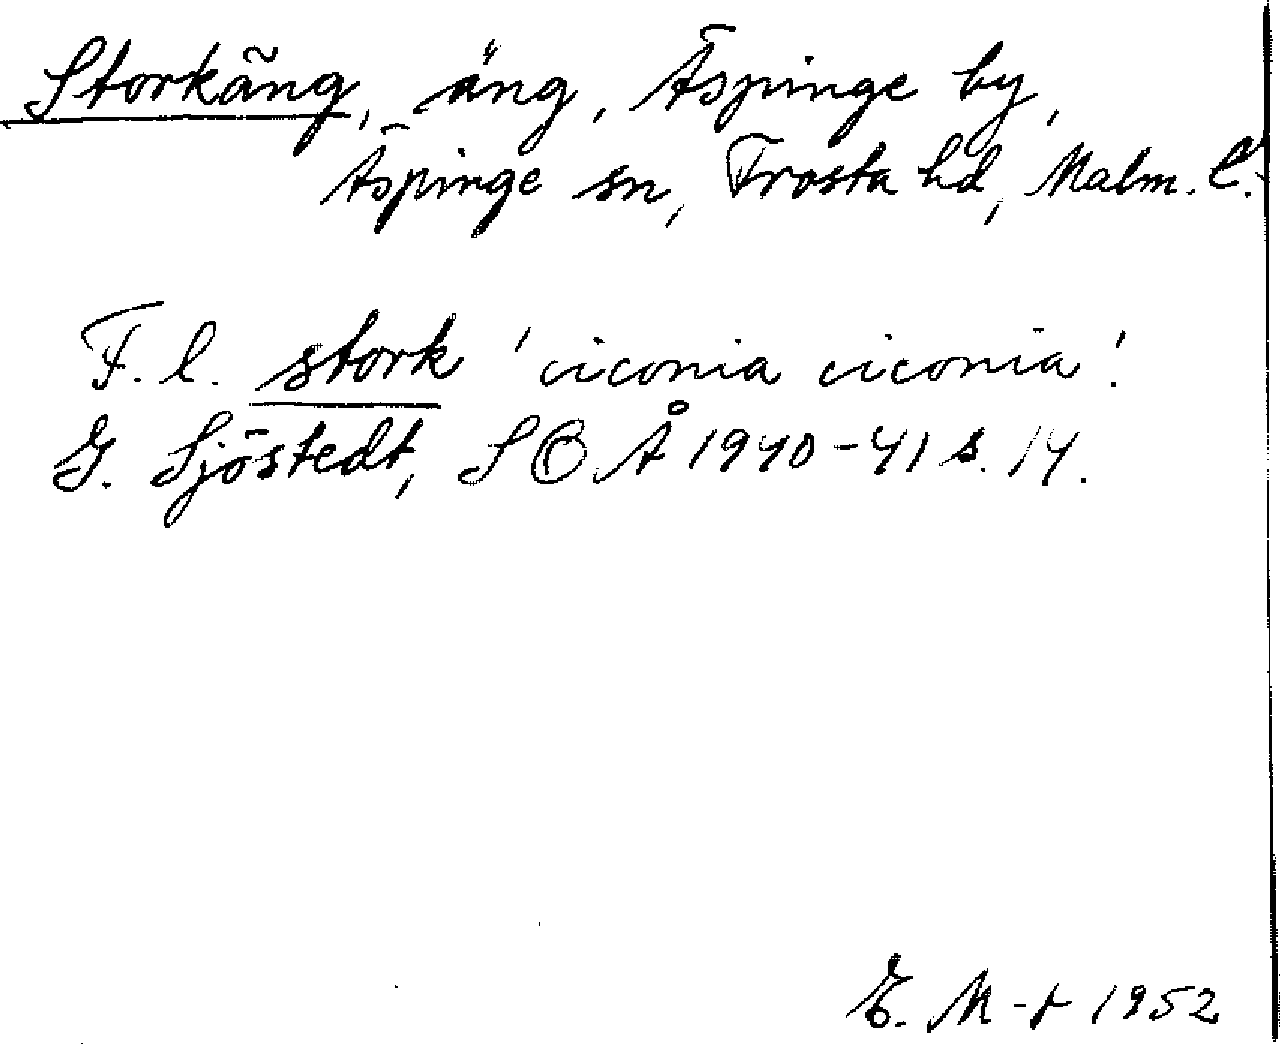 Storkäng, äng, Äspinge by,
Äspinge sn, Frosta hd, Malm. l.
F. l. stork 'ciconia ciconia'.
G. Sjöstedt, SOÅ 1940-41 s. 14.
E. M-t 1952